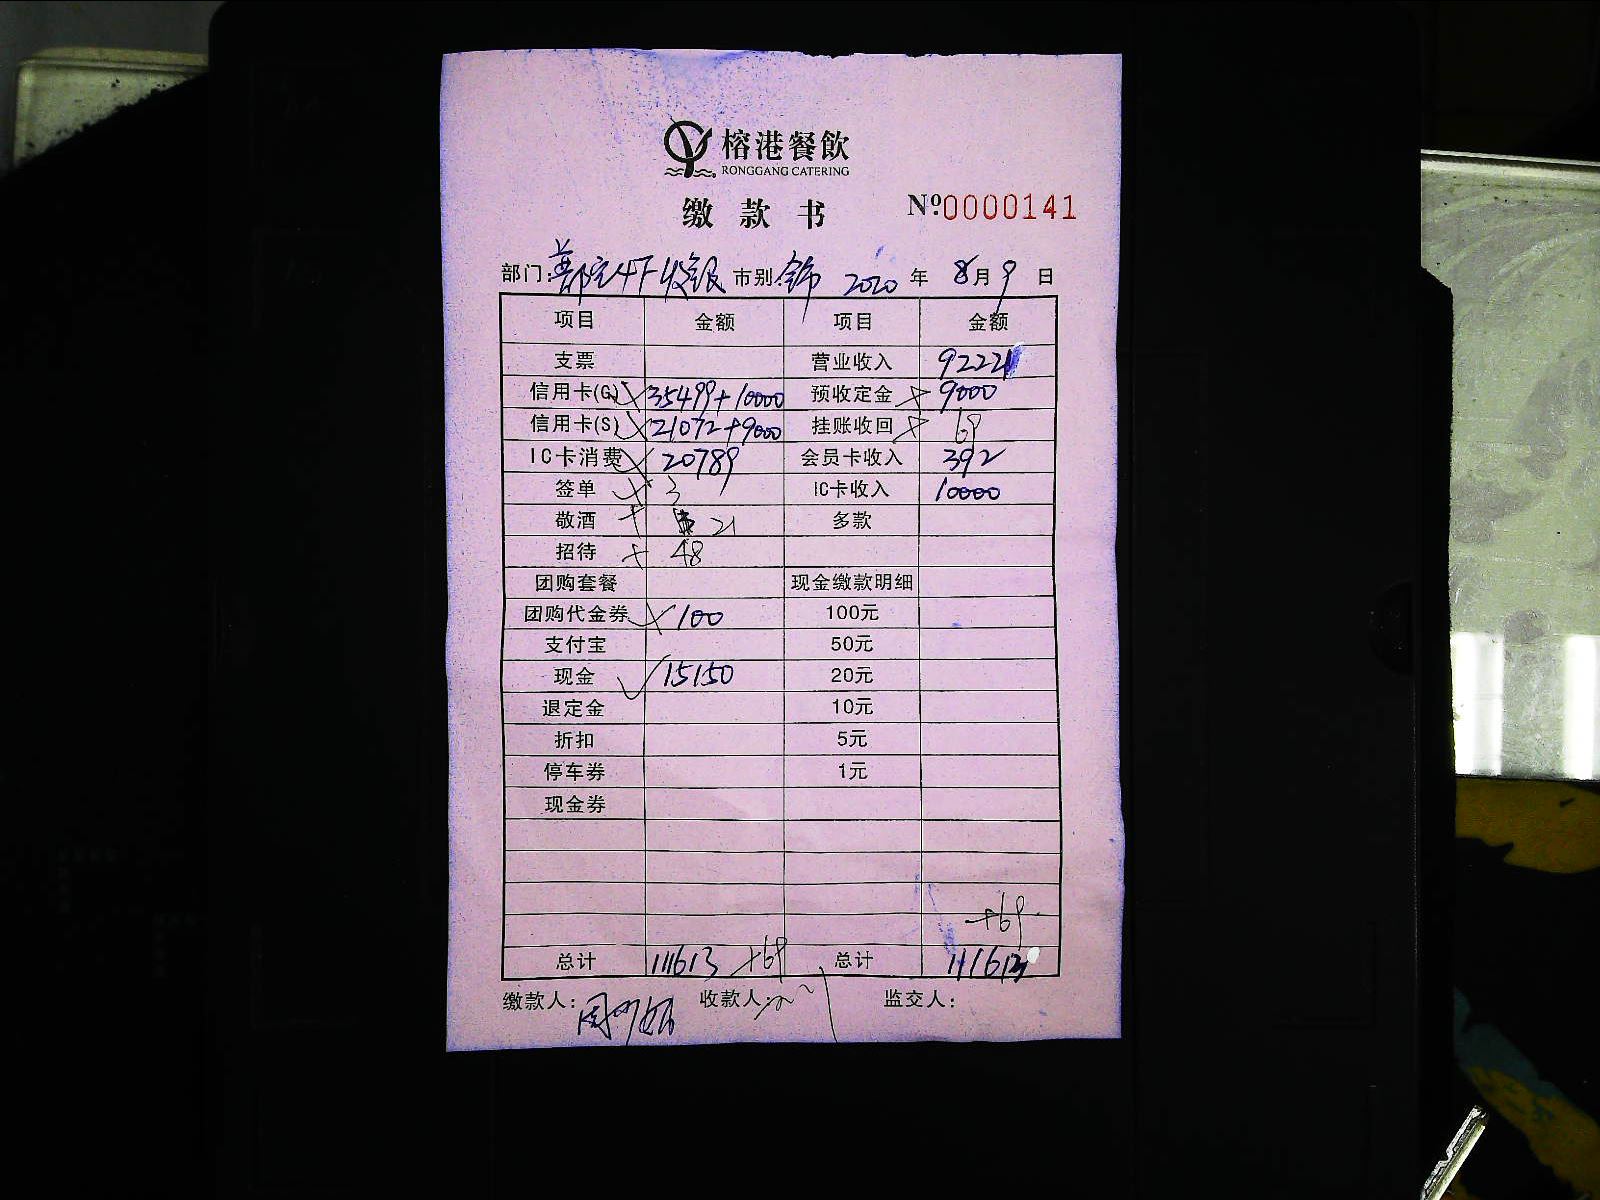 榕港餐飲
RONGGANG CATERING
缴款书 Nº0000141
部门: 4F 收银 市别: 2020年8月9日
项目 金额 项目 金额
支票 营业收入 92221
信用卡(G) 35499+10000 预收定金 9000
信用卡(S) 21072+9000 挂账收回 69
IC卡消费 20789 会员卡收入 392
签单 3 IC卡收入 10000
敬酒 21 多款
招待 48
团购套餐 现金缴款明细
团购代金券 100 100元
支付宝 50元
现金 15150 20元
退定金 10元
折扣 5元
停车券 1元
现金券
+69
总计 111613 +69 总计 111613
缴款人: 收款人: 监交人: